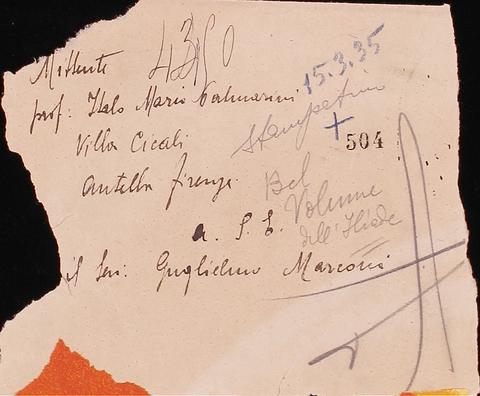 Mittente 4350
15.3.35
prof: Italo Mario Palmarini
Stampetrin
+
504
Villa Cicali
Antella Firenze
Bel
Volume
dell'Iliade
a. S. E.
il Sen: Guglielmo Marconi